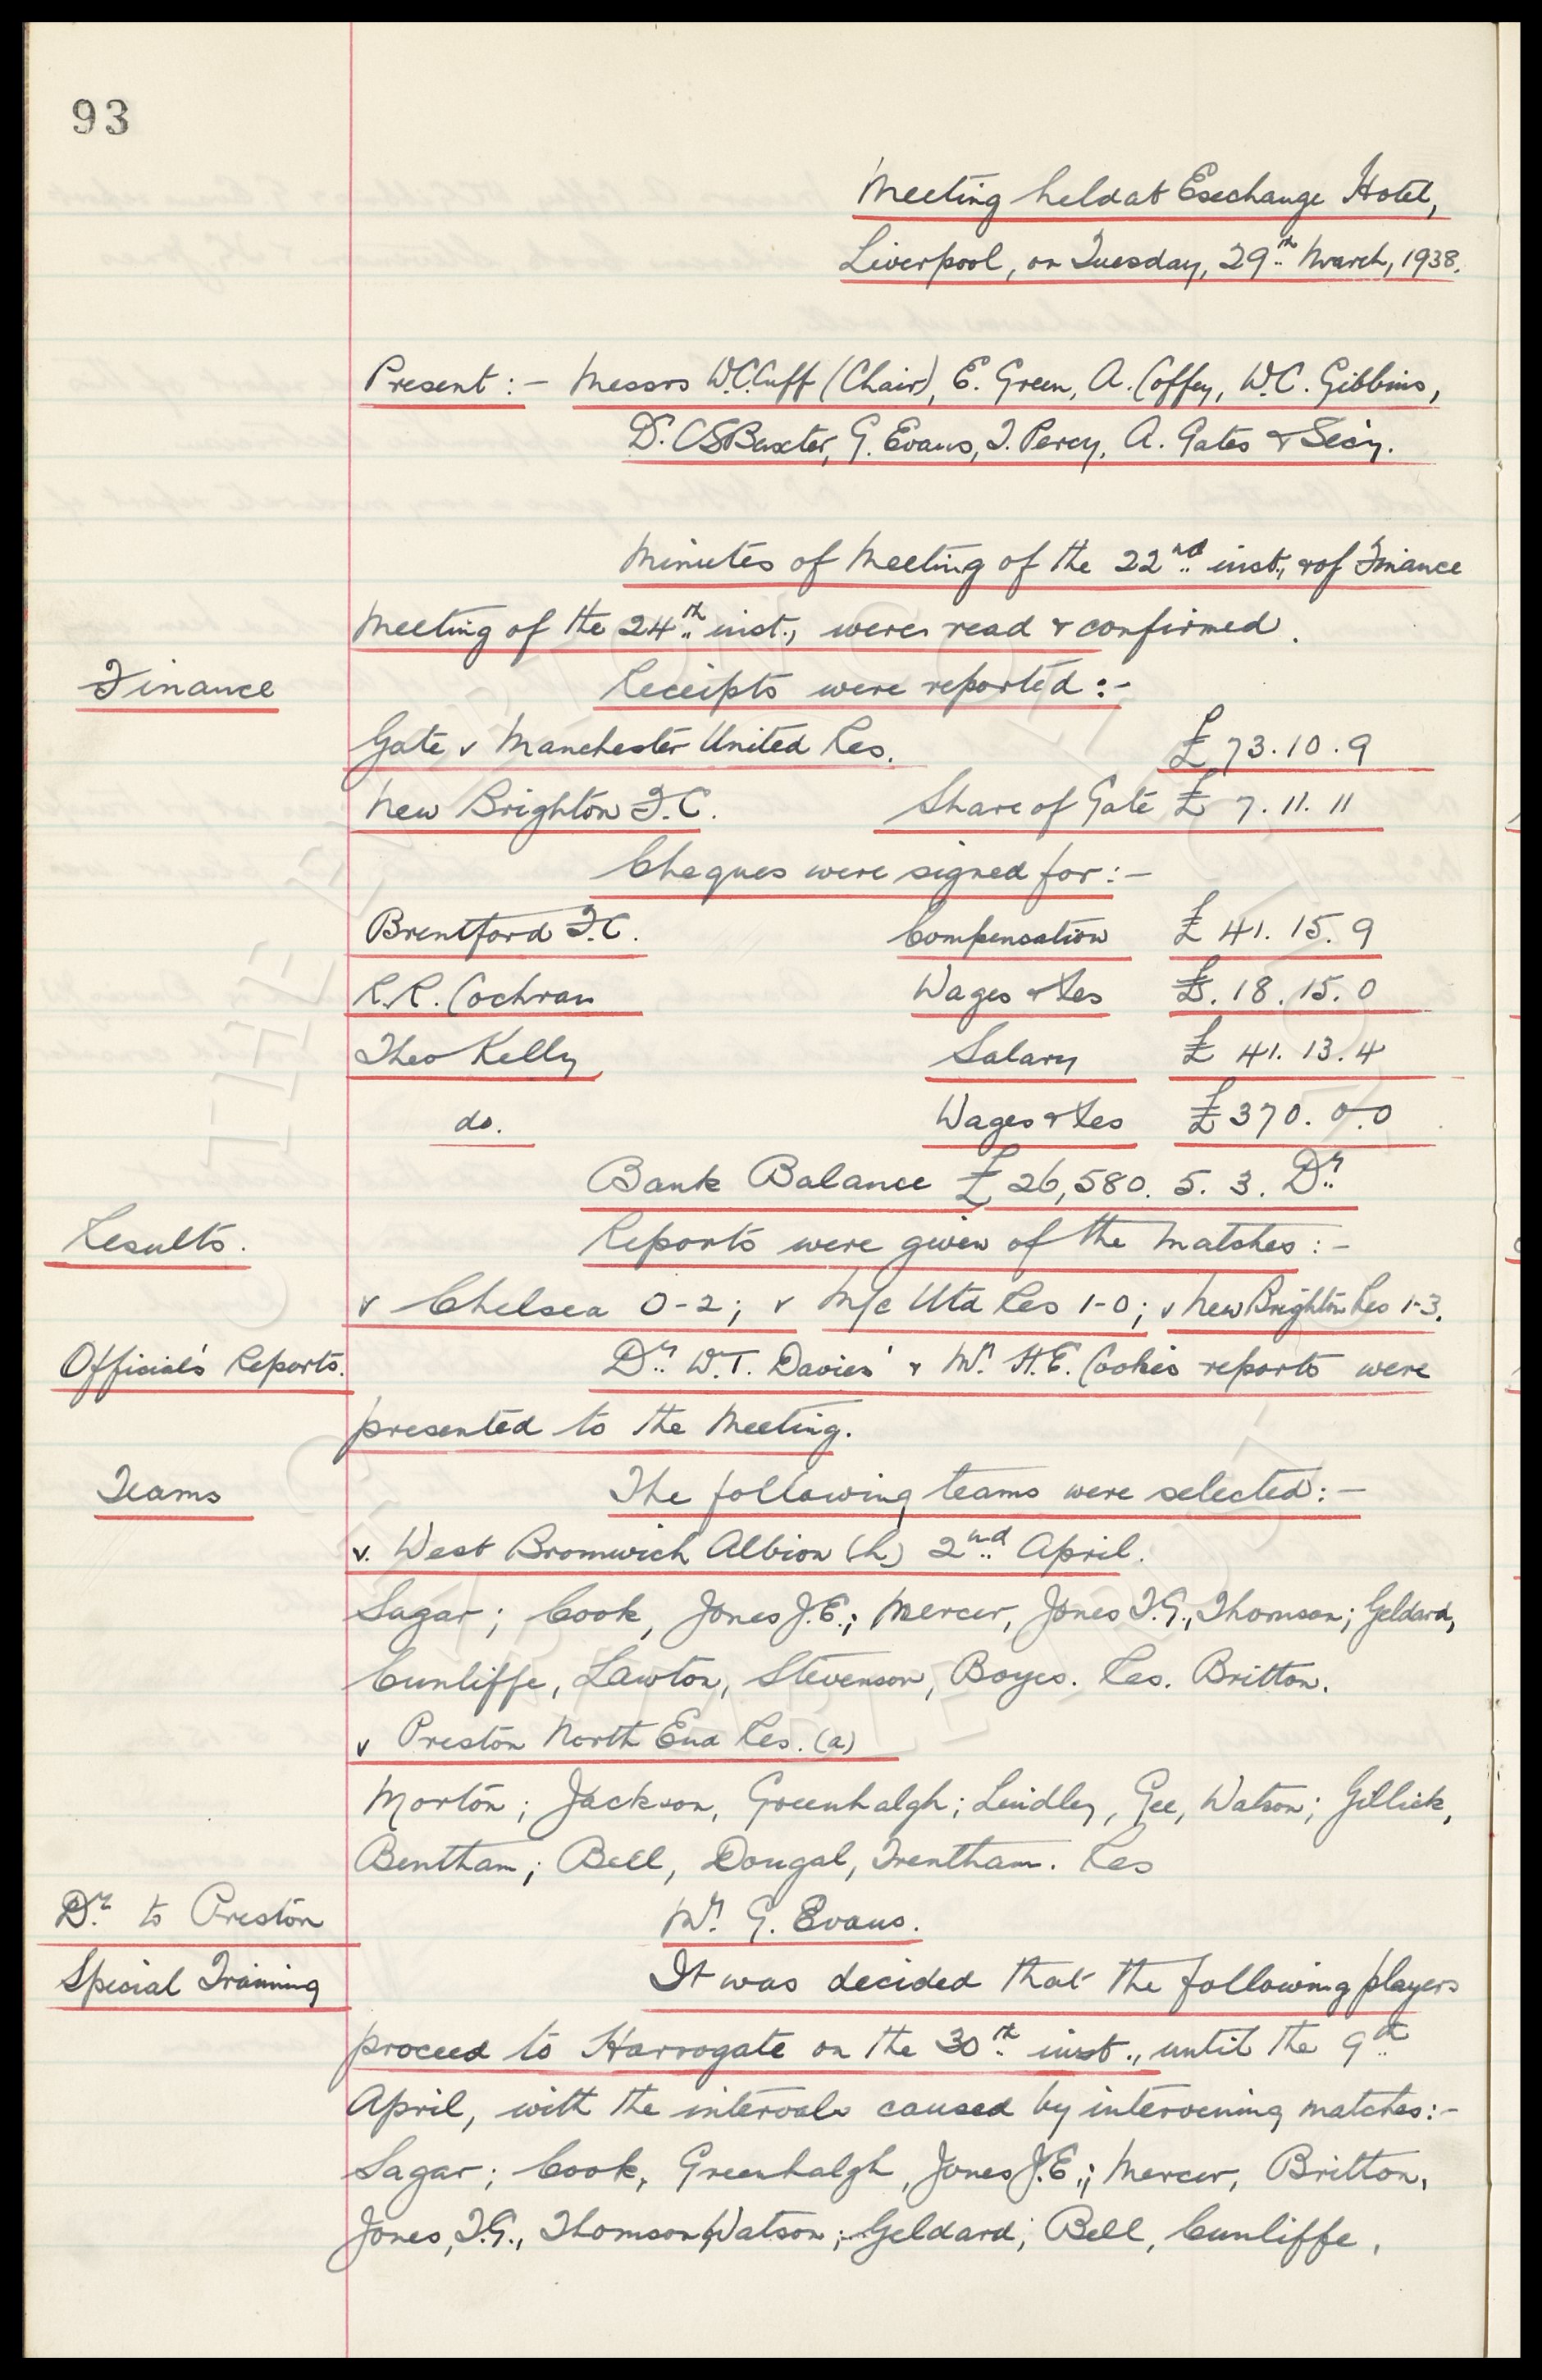 93
Meeting held at Exchange Hotel,
Liverpool, on Tuesday, 29th March, 1938.
Present :- Messrs W.C. Cuff (Chair), E. Green, A. Coffey, W.C. Gibbins,
Dr. C.S. Baxter, G. Evans, T. Percy, A. Gates & Sec'y.
Minutes of Meeting of the 22nd inst., & of Finance
Meeting of the 24th inst., were read & confirmed.
Finance
Receipts were reported :-
Gate v Manchester United Res. £ 73.10.9
New Brighton F.C. Share of Gate £ 7.11.11
Cheques were signed for :-
Brentford F.C. Compensation £ 41.15.9
R.R. Cochran Wages &tes £.18.15.0
Theo Kelly Salary £ 41.13.4
do. Wages &tes £370.0.0
Bank Balance £26,580.5.3. Dr
Results.
Reports were given of the matches :-
v Chelsea 0-2; v M/c Utd Res 1-0; v New Brighton Res 1-3.
Official's Reports.
Dr. W.T. Davies' & Mr. H.E. Cooke's reports were
presented to the Meeting.
Teams
The following teams were selected :-
v. West Bromwich Albion (h) 2nd April.
Sagar; Cook, Jones J.E.; Mercer, Jones T.G., Thomson; Geldard,
Cunliffe, Lawton, Stevenson, Boyes. Res. Britton.
v Preston North End Res. (a)
Morton; Jackson, Greenhalgh; Lindley, Gee, Watson; Gillick,
Bentham; Bell, Dougal, Trentham. Res
Dr. to Preston
Mr. G. Evans.
Special Training
It was decided that the following players
proceed to Harrogate on the 30th inst., until the 9th
April, with the intervals caused by intervening matches :-
Sagar; Cook, Greenhalgh, Jones J.E.; Mercer, Britton,
Jones, T.G., Thomson, Watson; Geldard; Bell, Cunliffe,